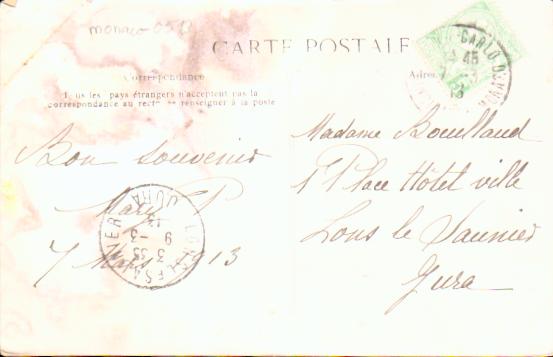 monaco
CARTE POSTALE
Correspondance
Tous les pays étrangers n'acceptent pas la
correspondance au recto se renseigner à la poste
Adres
Bon souvenir
Mary P
7 Mars 1913
CARLO
45
13
LONS LE SAUNIER
JURA
9 -3
13
Madame Bouilland
1 Place Hôtel ville
Lons le Saunier
Jura